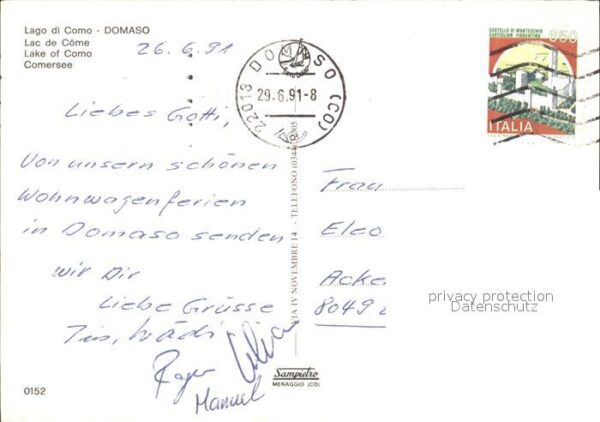 Lago di Como - DOMASO
Lac de Côme
Lake of Como
Comersee
26.6.91
22013 DOMASO (CO)
29.6.91-8
CASTELLO DI MONTECCHIO
CASTIGLION FIORENTINO
650
ITALIA
Liebes Gotti,
Von unsern schönen
Wohnwagenferien
in Domaso senden
wir Dir
Liebe Grüsse
Roger
Manuel
Frau
Eleo
Acke
8049
privacy protection
Datenschutz
VIA IV NOVEMBRE 14 - TELEFONO (0344)
Sampietro
MENAGGIO (CO)
0152